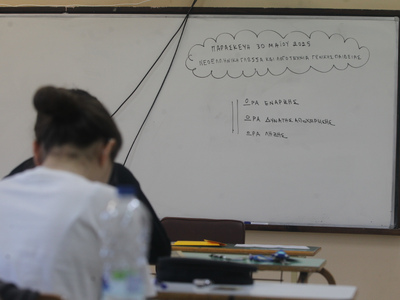 ΠΑΡΑΣΚΕΥΗ 30 ΜΑΙΟΥ 2025
ΝΕΟΕΛΛΗΝΙΚΗ ΓΛΩΣΣΑ ΚΑΙ ΛΟΓΟΤΕΧΝΙΑ ΓΕΝΙΚΗΣ ΠΑΙΔΕΙΑΣ
ΩΡΑ ΕΝΑΡΞΗΣ
ΩΡΑ ΔΥΝΑΤΗΣ ΑΠΟΧΩΡΗΣΗΣ
ΩΡΑ ΛΗΞΗΣ